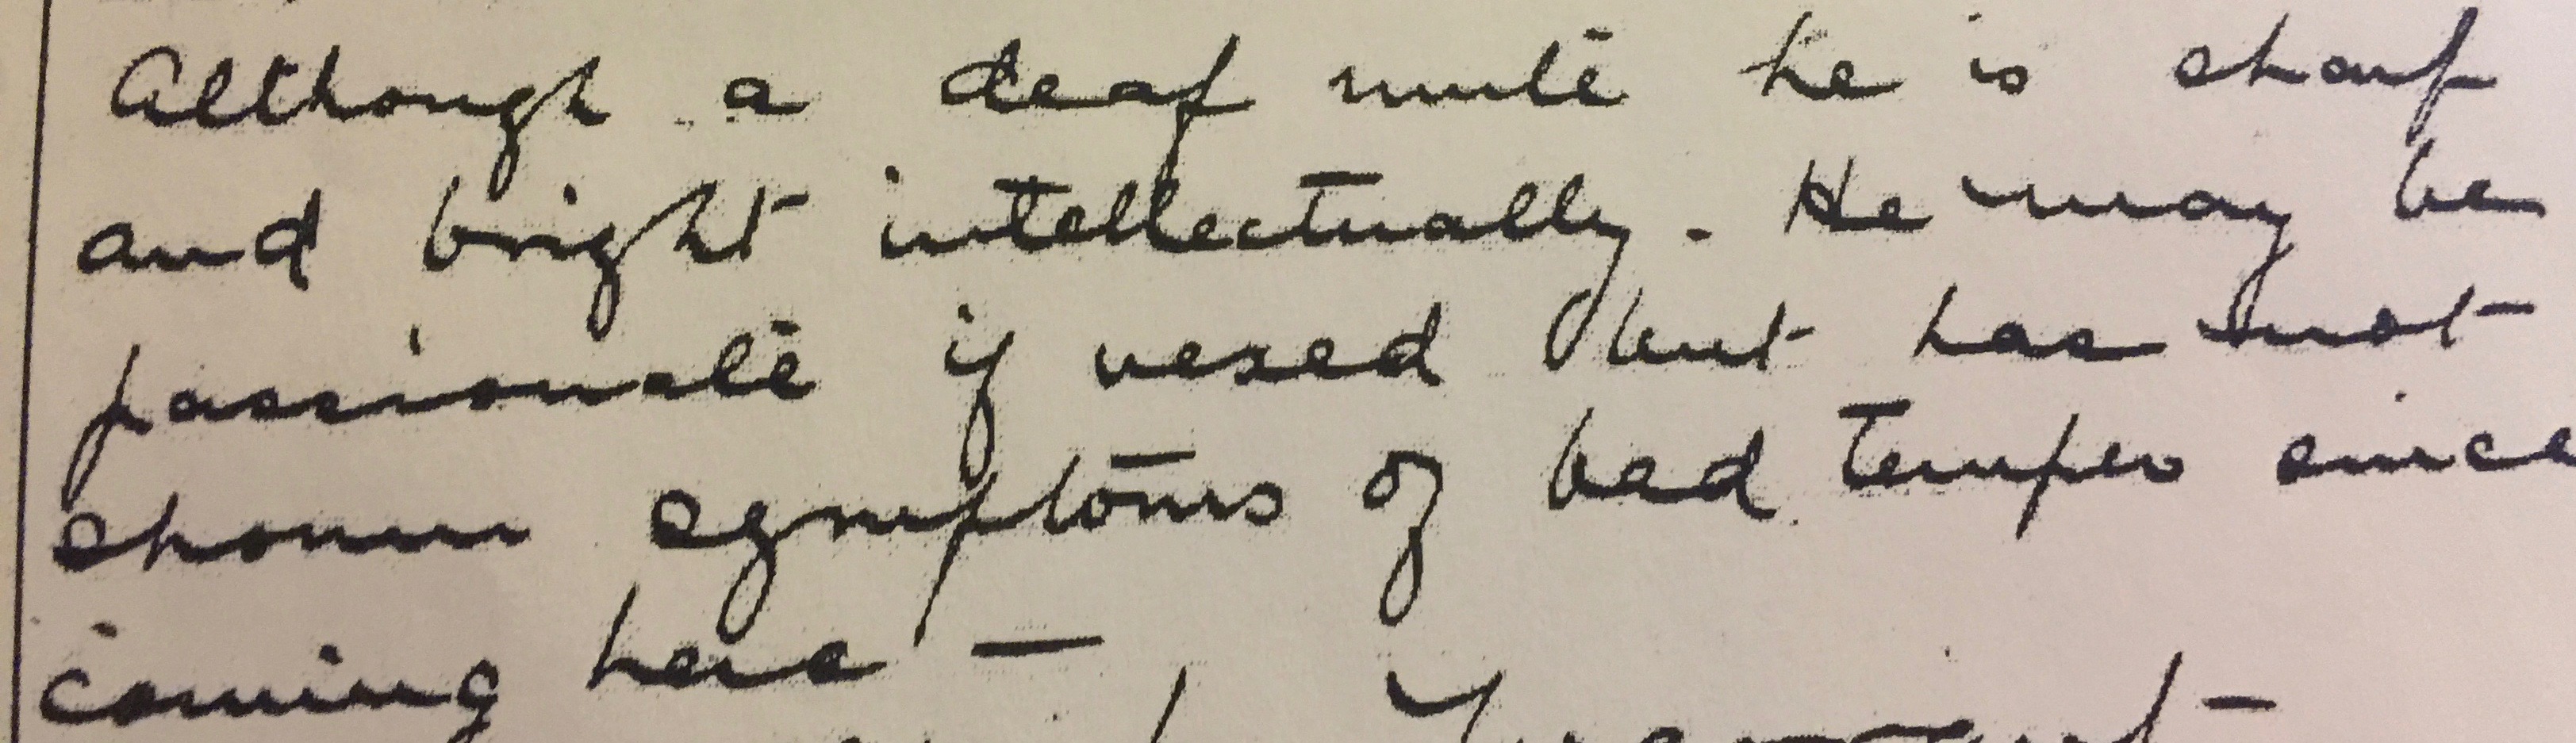 Although a deaf mute he is sharp
and bright intellectually. He may be
passionate if vexed but has not
shown symptoms of bad temper since
coming here —